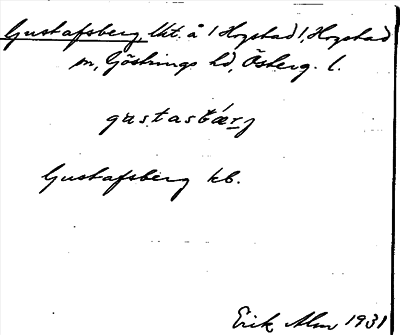 Gustafsberg, lht. å /Hogstad/, Hogstad
sn, Göstrings hd, Österg. l.
gustasbær̲j
Gustafsberg kb.
Erik Alm 1931